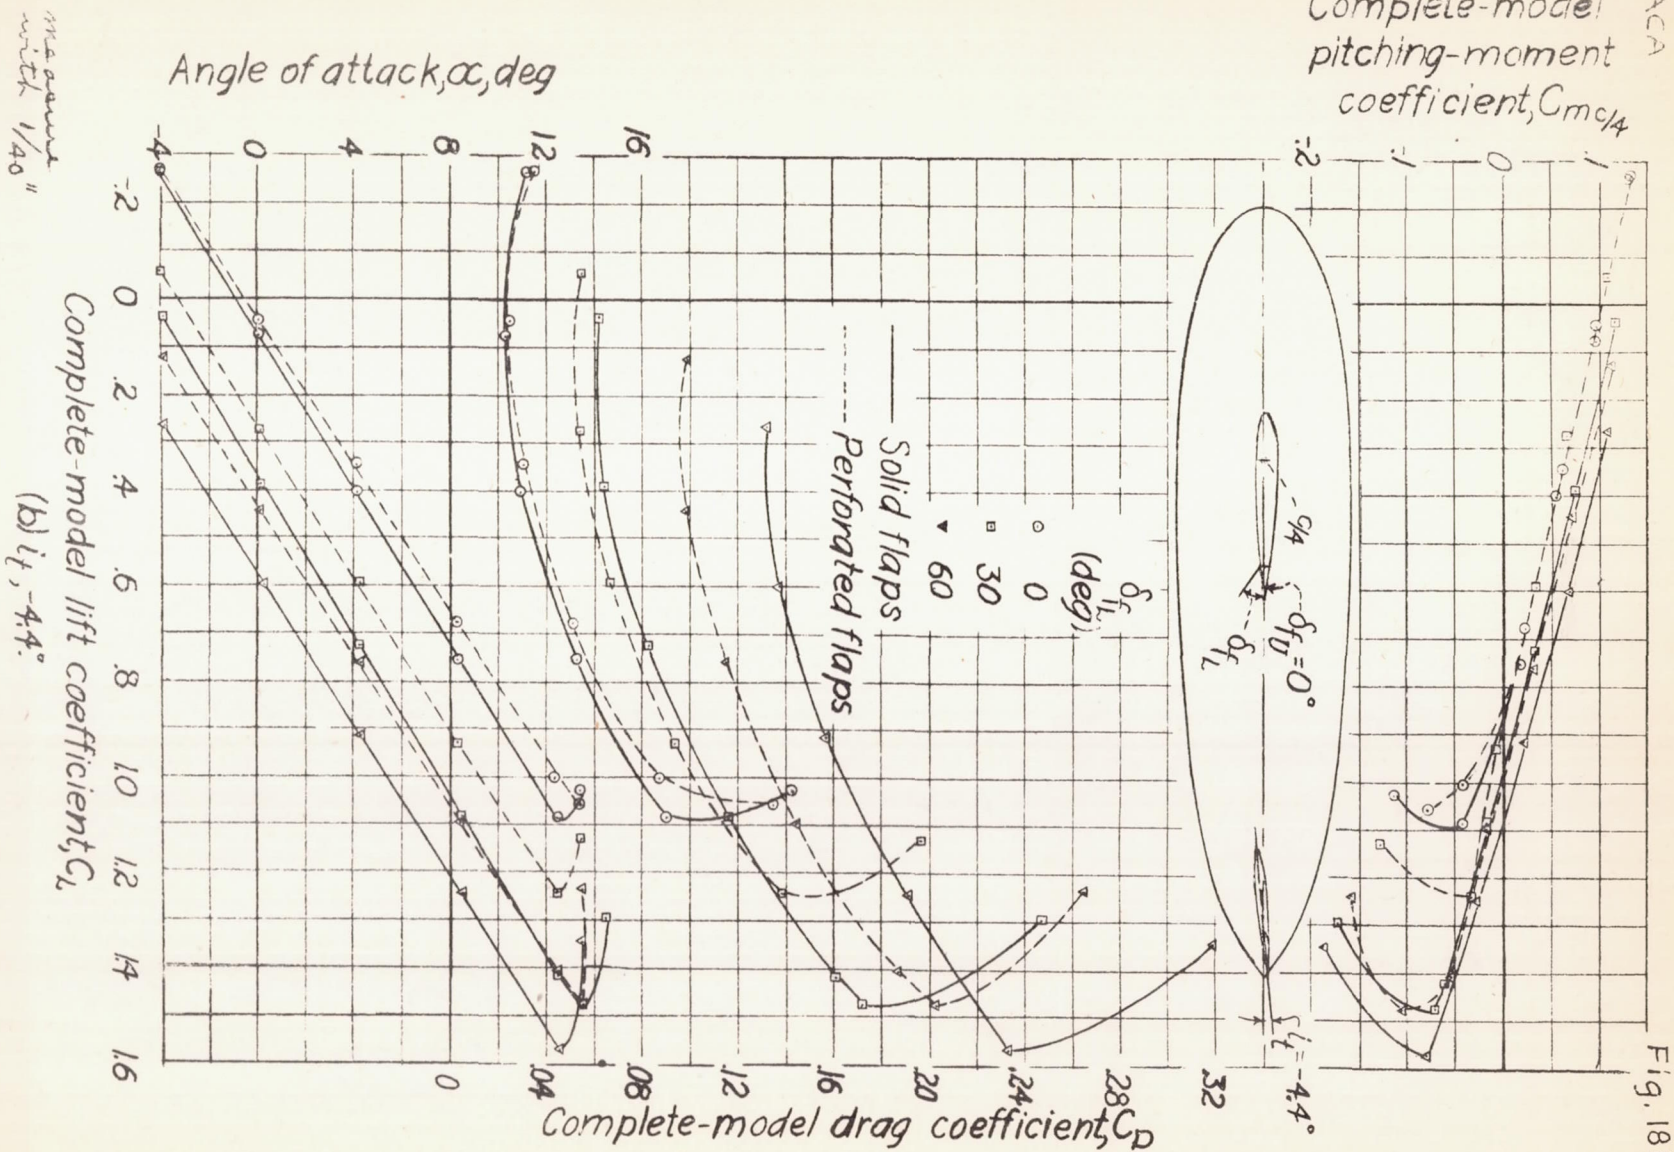 ACA
Fig. 18
Complete-model
pitching-moment
coefficient, Cmc/4
Angle of attack, α, deg
-4
0
4
8
12
16
-.2
-.1
0
.1
-.2
0
.2
.4
.6
.8
1.0
1.2
1.4
1.6
Complete-model lift coefficient, CL
(b) it, -4.4°
0
.04
.08
.12
.16
.20
.24
.28
.32
Complete-model drag coefficient, CD
δfL
(deg)
0
30
60
Solid flaps
Perforated flaps
c/4
δfU=0°
δfL
it=-4.4°
measure
with 1/40"